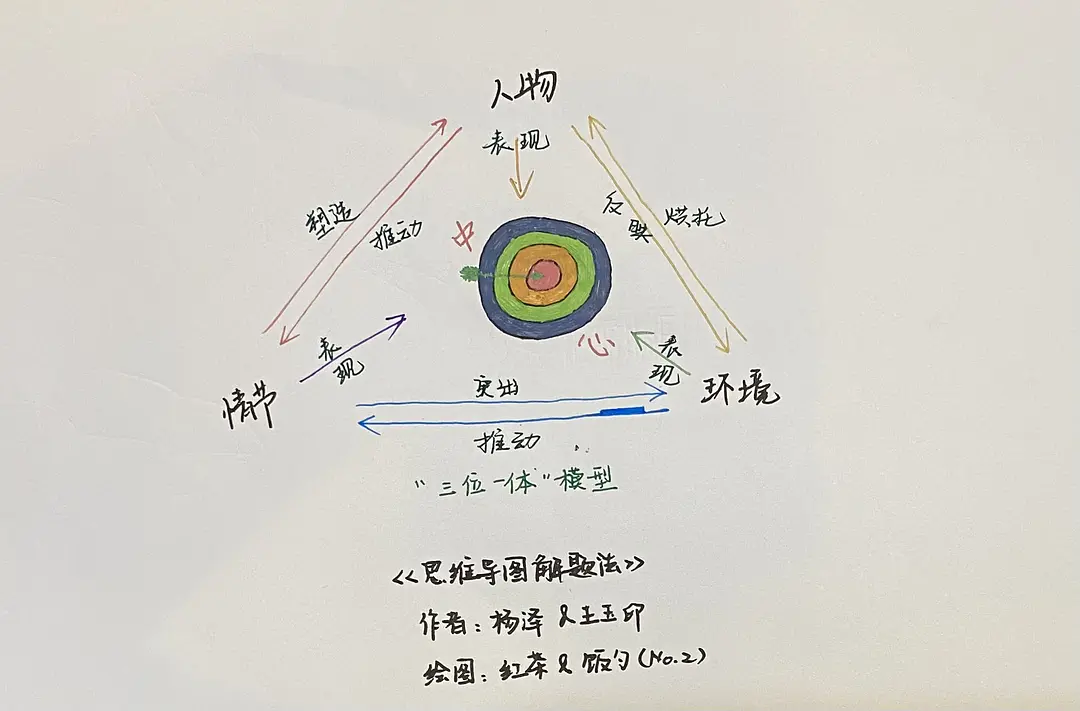 人物
表现
塑造
推动
中
反映
烘托
心
表现
表现
情节
突出
环境
推动
“三位一体”模型
《思维导图解题法》
作者：杨泽&王玉印
绘图：红茶&饭勺(No.2)